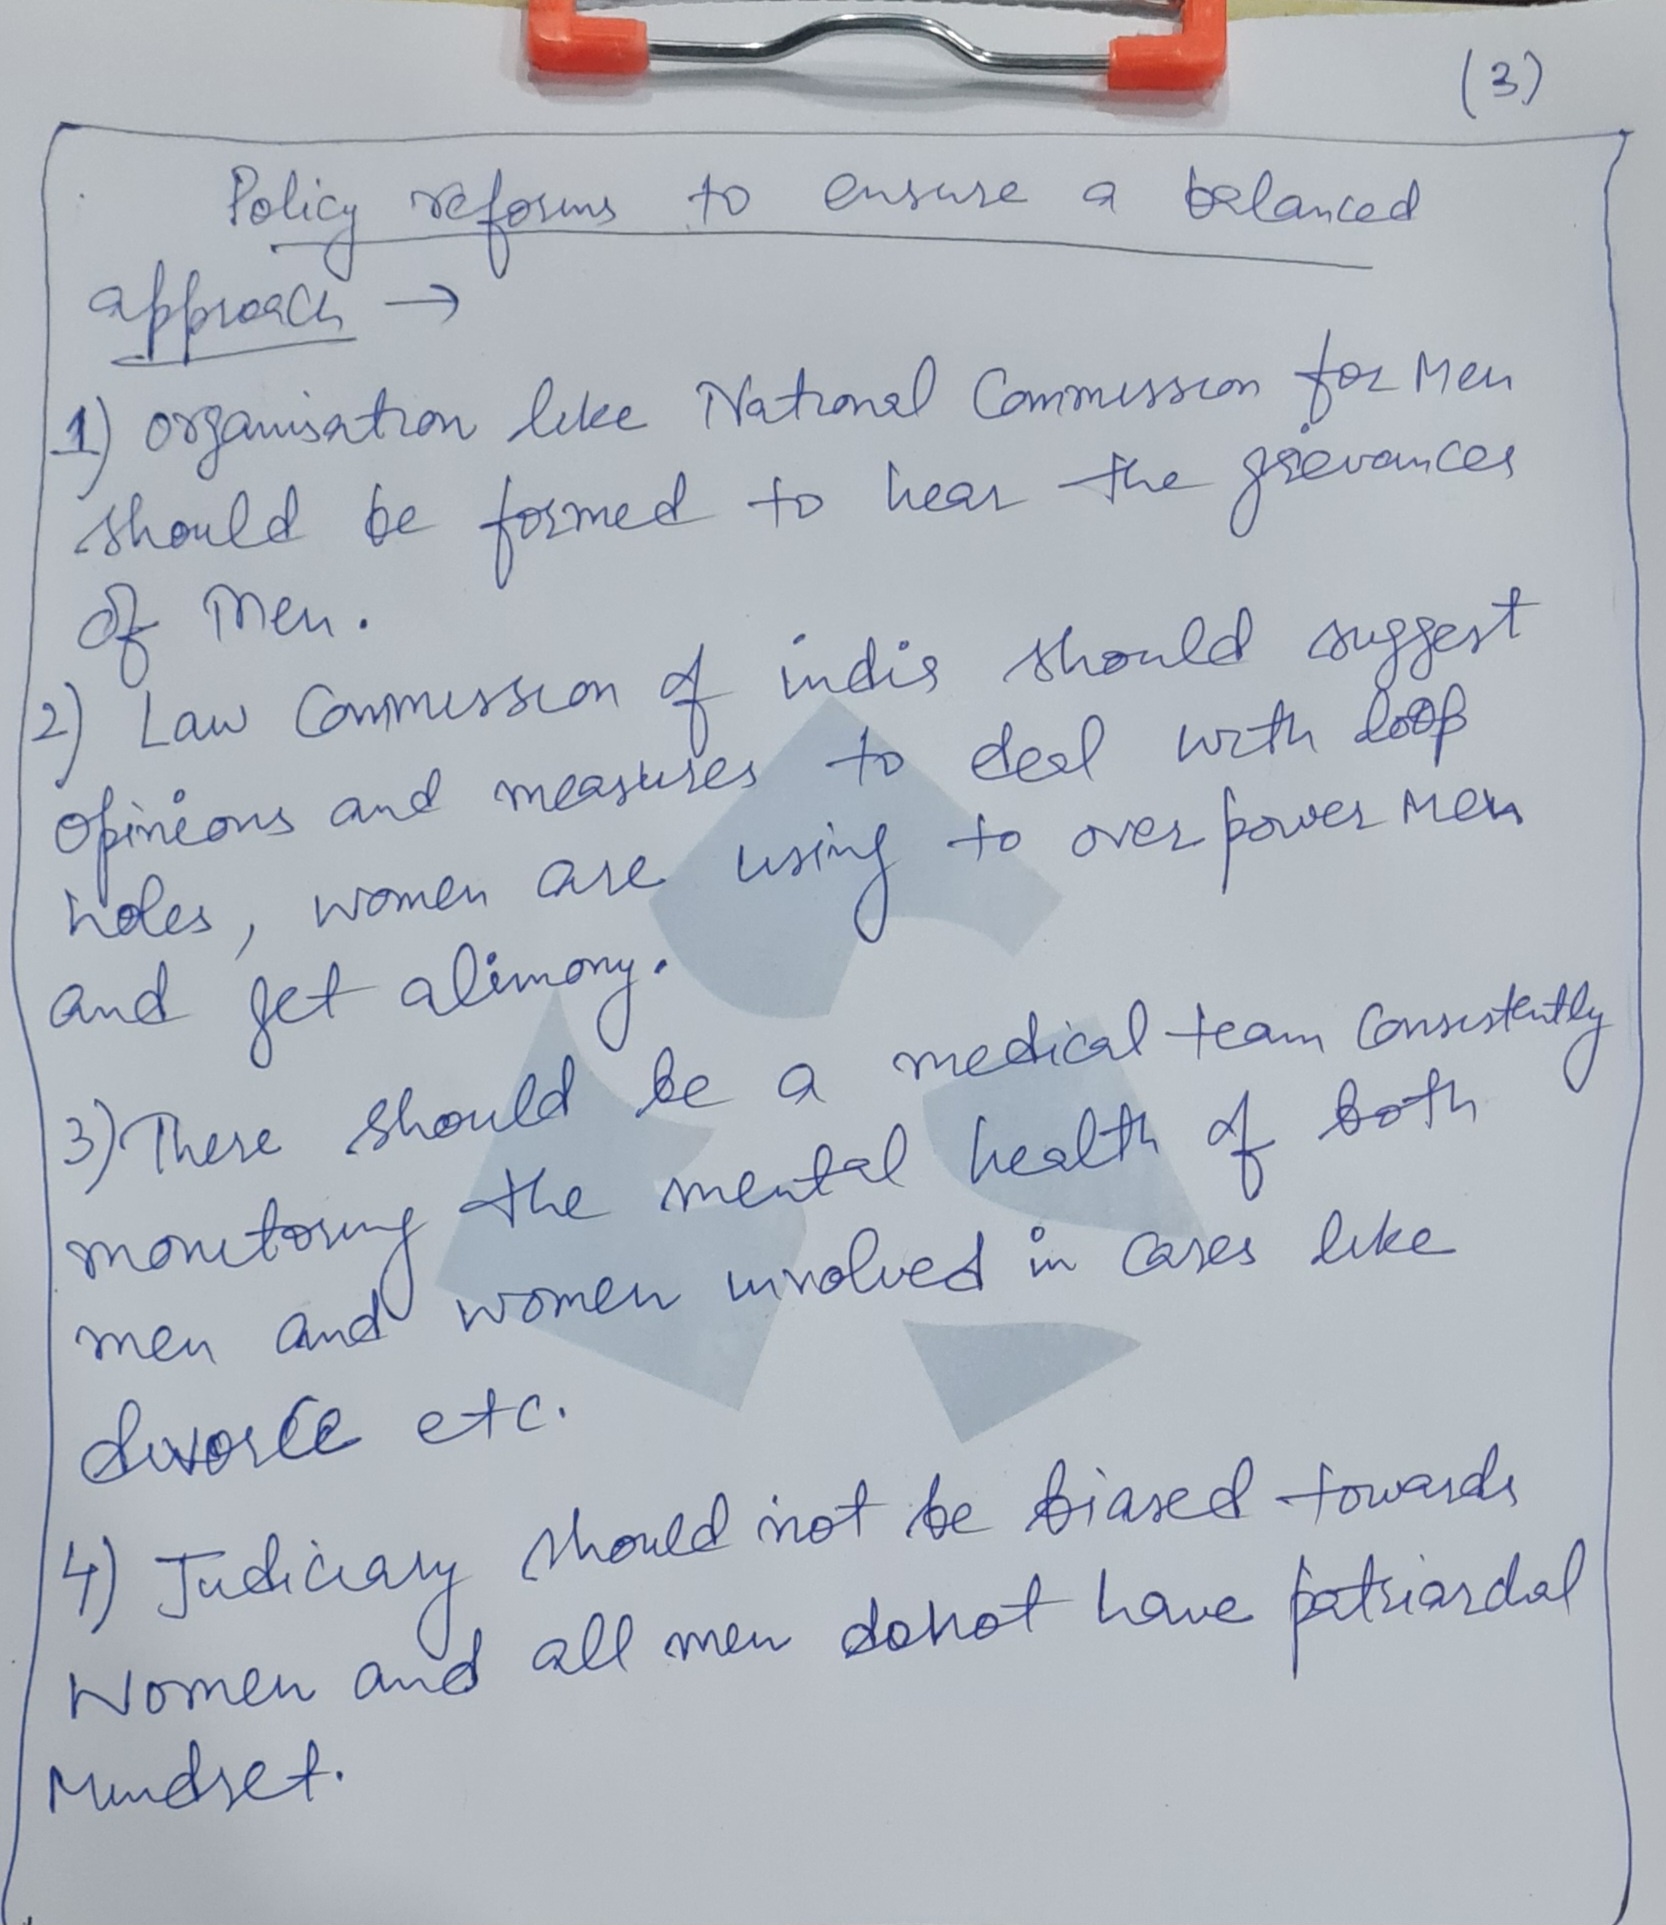 (3)
Policy reforms to ensure a balanced
approach →
1) organisation like National Commission for Men
should be formed to hear the grievances
of Men.
2) Law Commission of india should suggest
opinions and measures to deal with loop
holes, women are using to over power Men
and get alimony.
3) There should be a medical team consistently
monitoring the mental health of both
men and women involved in cases like
divorce etc.
4) Judiciary should not be biased towards
Women and all men donot have patriardal
Mindset.